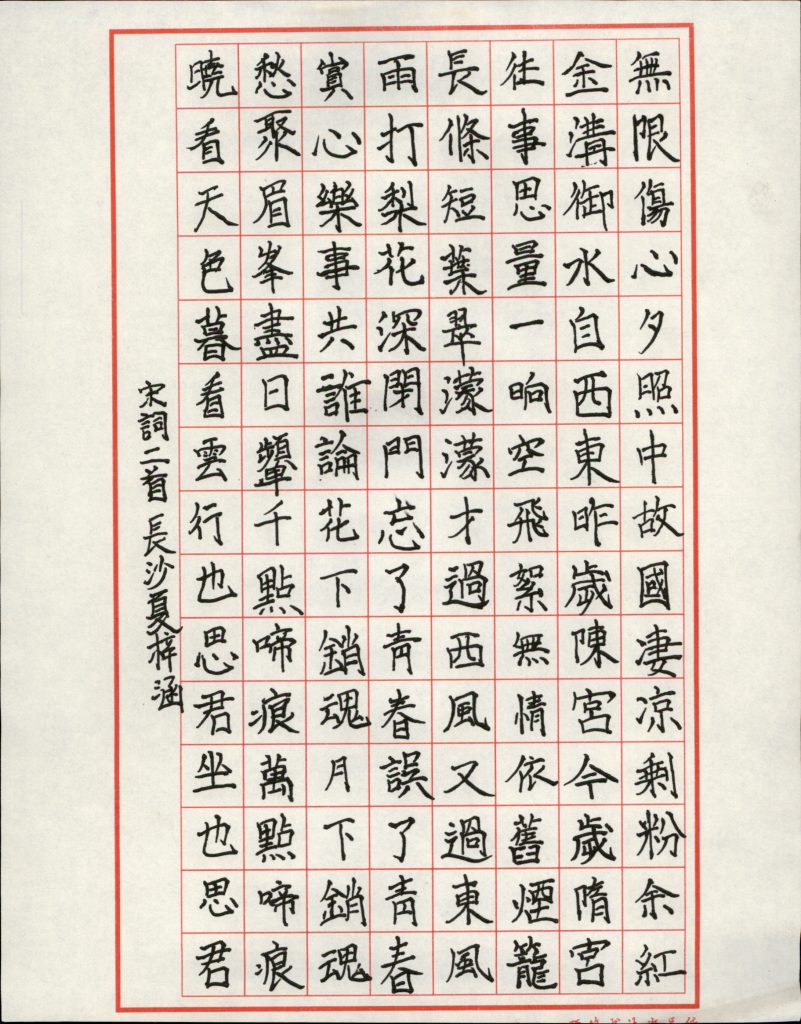 無限傷心夕照中故國淒凉剩粉余紅
金溝御水自西東昨歲陳宮今歲隋宮
往事思量一晌空飛絮無情依舊煙籠
長條短葉翠濛濛才過西風又過東風
雨打梨花深閉門忘了青春誤了青春
賞心樂事共誰論花下銷魂月下銷魂
愁聚眉峯盡日顰千點啼痕萬點啼痕
曉看天色暮看雲行也思君坐也思君
宋詞二首長沙夏梓涵